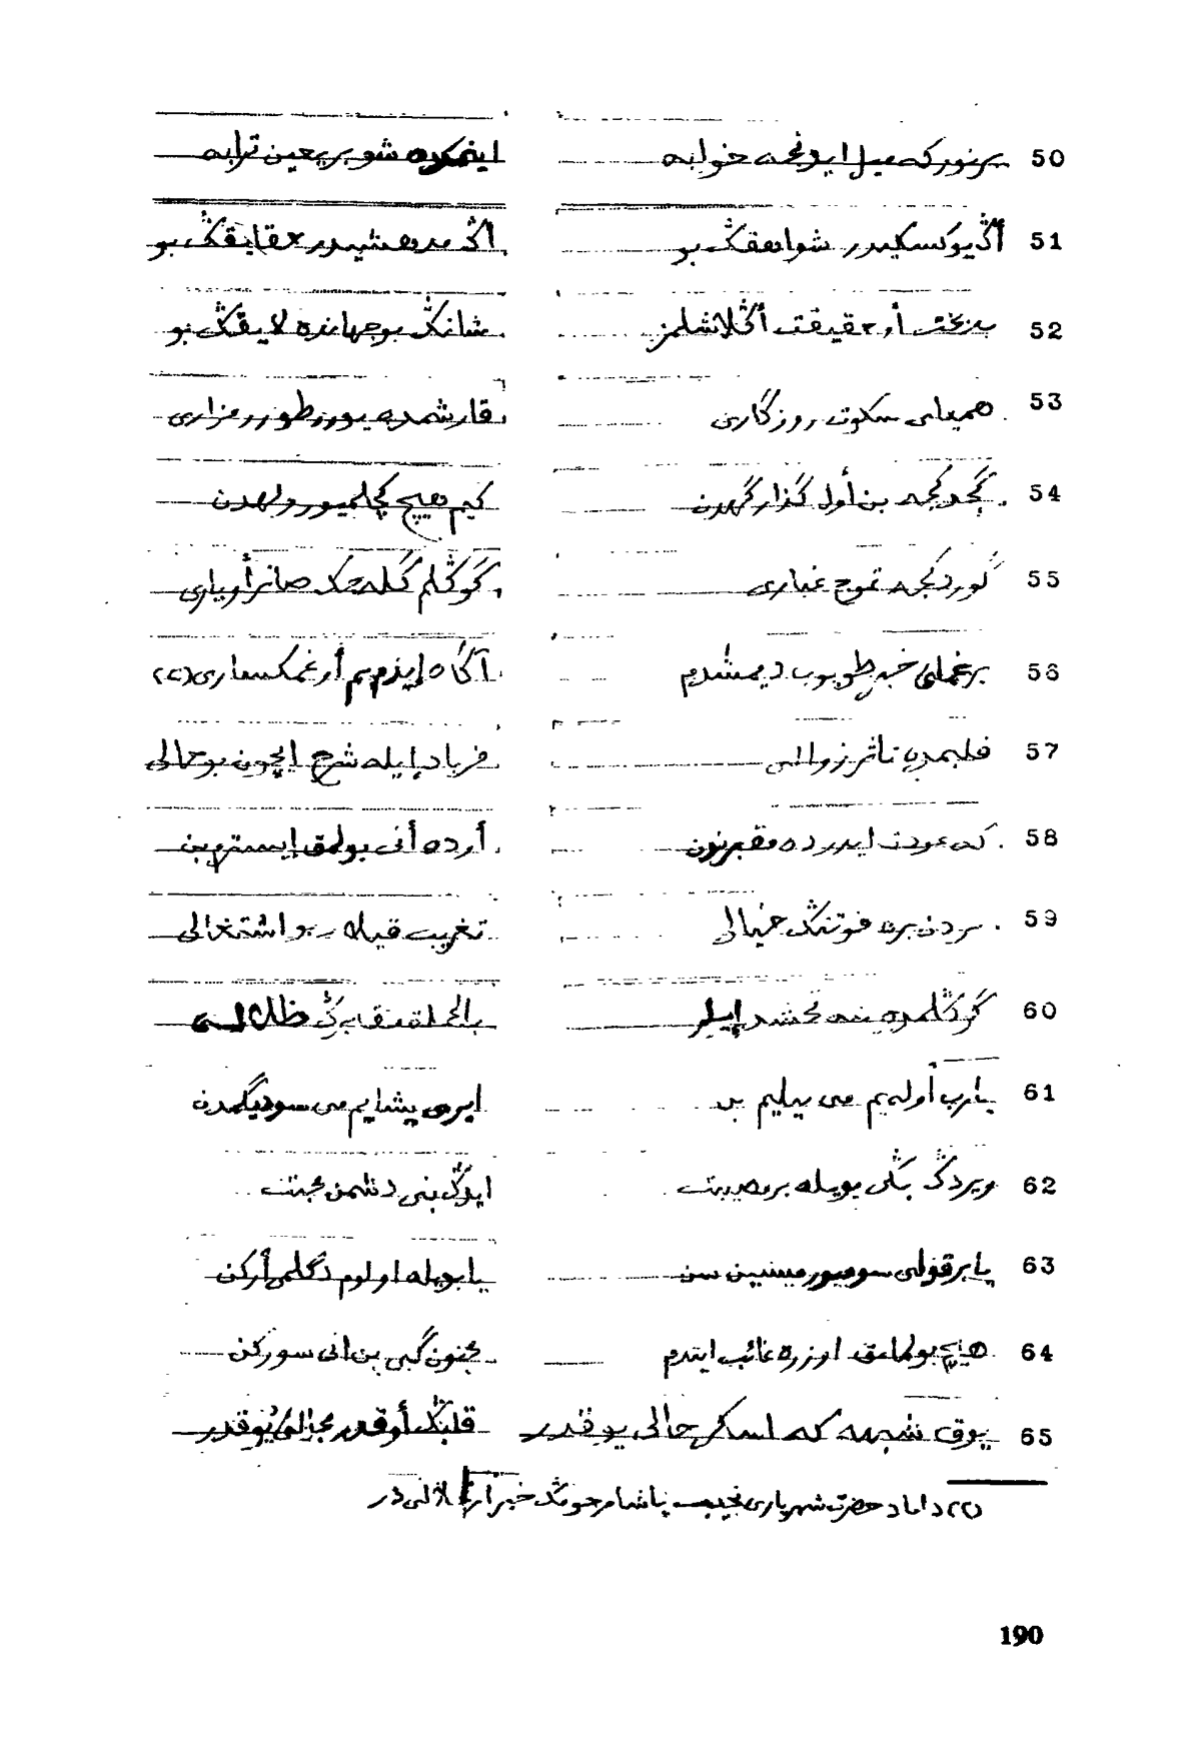 50 بر نور که میل ایدنجه خوابه اینمکده شو بر یعین ترابه
51 أڭ یوکسکیدر شواهقڭ بو أڭ مدهشیدر حقایقڭ بو
52 بدبخت أو حقیقت أڭلاشلمز شانڭ بو جهانده لایقڭ بو
53 سکوت روزگاری قارشمده یوور مزاری
54 گجدکجه بن أول گذارگهدن کیم هیچ کچلمیور ولهدن
55 گوردکجه تموج غباری گوڭلم گله جک صانر أو یاری
56 بر غملی خبر طویوب دیمشدم آگاه ایدرم أو غمکساری (٢)
57 قلبمده تأثر زوالی فریاد ایله شرح ایچون بو حالی
58 که عودت ایدر ده مقبرندن أرده أنی بولمق ایسترم بن
59 سردن بره فوتنڭ خیالی تغریب قیلر بو اشتغالی
60 گوڭلمده ینه تحشد ایلر بالجمله
61 یارب أوله یم می بیلیم بن ایری یشایم می سودیگمدن
62 ویردڭ بڭا بویله بر مصیبت ایتدڭ بنی دشمن محبت
63 یا بر قولی سومیور میسین سن یا بویله اولورم دگلمی أرکن
64 هیچ بولمامق اوزره غائب ایتدم مجنون گبی بن انی سورکن
65 یوق شبهه که حالی یوقدر قلبڭ أوقدر مجالی یوقدر
(٢) داماد حضرت شهریاری نجیب پاشا مرحومڭ خبر ارتحالی در
190